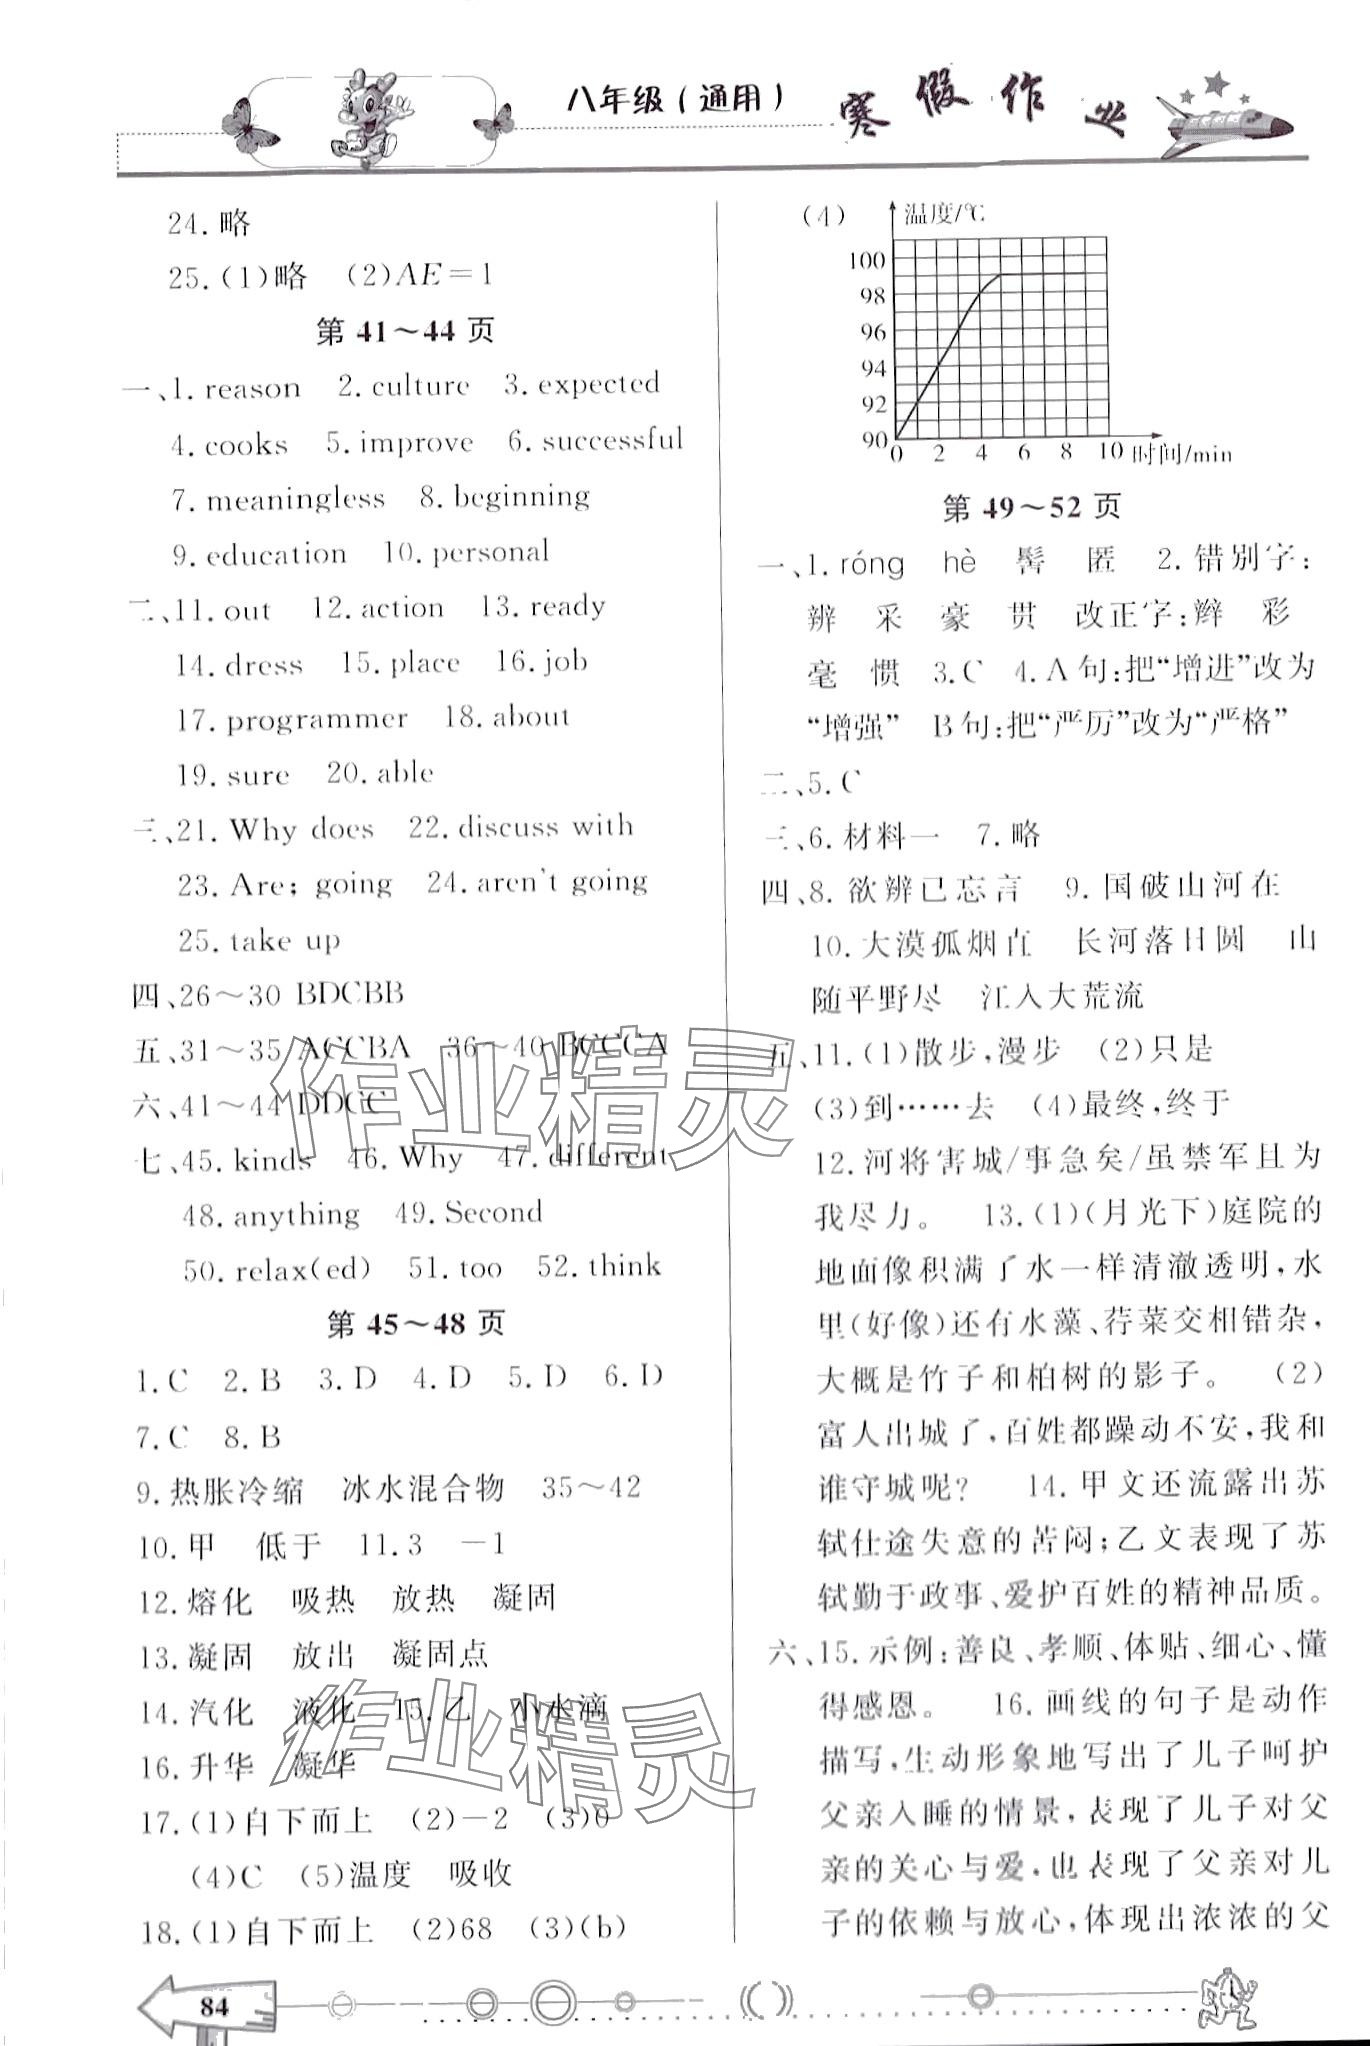 八年级(通用) 寒假作业
24.略
25.(1)略 (2)AE=1
第 41～44 页
一、1.reason 2.culture 3.expected
4.cooks 5.improve 6.successful
7.meaningless 8.beginning
9.education 10.personal
二、11.out 12.action 13.ready
14.dress 15.place 16.job
17.programmer 18.about
19.sure 20.able
三、21.Why does 22.discuss with
23.Are; going 24.aren't going
25.take up
四、26～30 BDCBB
五、31～35 ACCBA 36～40 BCCCA
六、41～44 DDCC
七、45.kinds 46.Why 47.different
48.anything 49.Second
50.relax(ed) 51.too 52.think
第 45～48 页
1.C 2.B 3.D 4.D 5.D 6.D
7.C 8.B
9.热胀冷缩 冰水混合物 35～42
10.甲 低于 11.3 －1
12.熔化 吸热 放热 凝固
13.凝固 放出 凝固点
14.汽化 液化 15.乙 小水滴
16.升华 凝华
17.(1)自下而上 (2)－2 (3)0
(4)C (5)温度 吸收
18.(1)自下而上 (2)68 (3)(b)
84
(4) 温度/℃
100
98
96
94
92
90
0 2 4 6 8 10 时间/min
第 49～52 页
一、1.róng hè 髻 匿 2.错别字:
辨 采 豪 贯 改正字:辫 彩
毫 惯 3.C 4.A句:把“增进”改为
“增强” B句:把“严厉”改为“严格”
二、5.C
三、6.材料一 7.略
四、8.欲辨已忘言 9.国破山河在
10.大漠孤烟直 长河落日圆 山
随平野尽 江入大荒流
五、11.(1)散步,漫步 (2)只是
(3)到……去 (4)最终,终于
12.河将害城/事急矣/虽禁军且为
我尽力。 13.(1)(月光下)庭院的
地面像积满了水一样清澈透明,水
里(好像)还有水藻、荇菜交相错杂,
大概是竹子和柏树的影子。 (2)
富人出城了,百姓都躁动不安,我和
谁守城呢? 14.甲文还流露出苏
轼仕途失意的苦闷;乙文表现了苏
轼勤于政事、爱护百姓的精神品质。
六、15.示例:善良、孝顺、体贴、细心、懂
得感恩。 16.画线的句子是动作
描写,生动形象地写出了儿子呵护
父亲入睡的情景,表现了儿子对父
亲的关心与爱,也表现了父亲对儿
子的依赖与放心,体现出浓浓的父
作业精灵
作业精灵